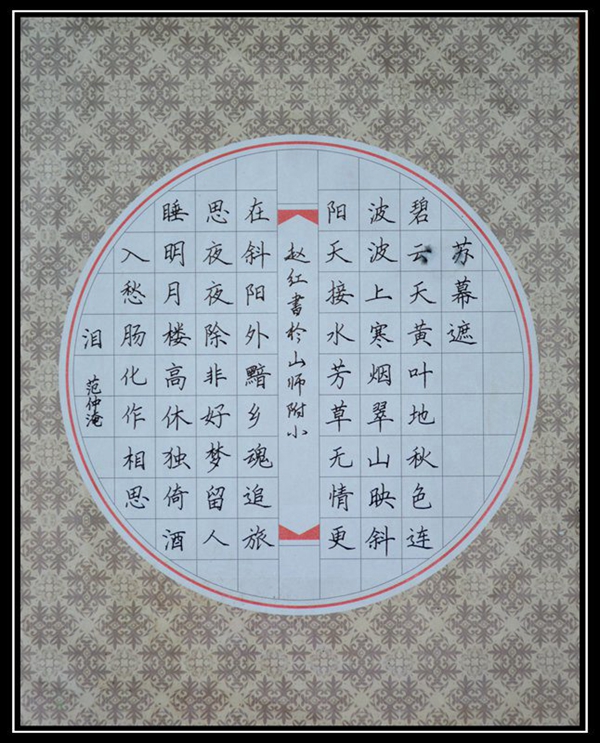 苏幕遮
碧云天黄叶地秋色连
波波上寒烟翠山映斜
阳天接水芳草无情更
在斜阳外黯乡魂追旅
思夜夜除非好梦留人
睡明月楼高休独倚酒
入愁肠化作相思
泪
范仲淹
赵红書於山师附小